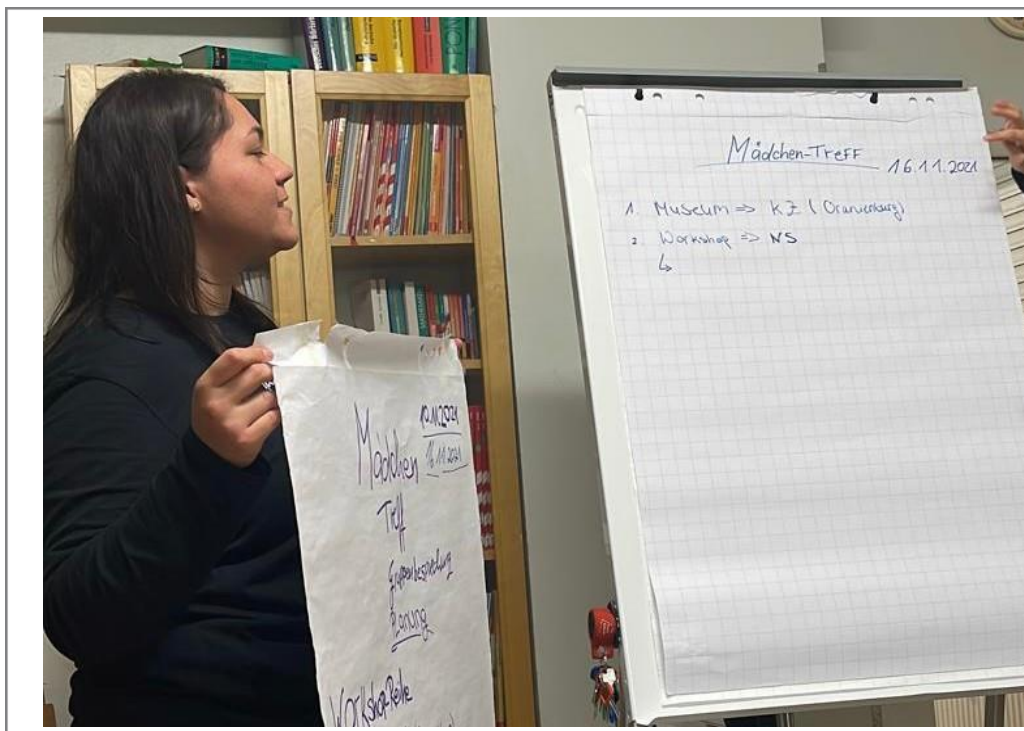 Mädchen-Treff
16.11.2021
1. Museum => KZ (Oranienburg)
2. Workshop => NS
↳
10.11.2021
16.11.2021
Mädchen
Treff
Gruppenbesprechung
Planung
Workshop-Reihe
PON